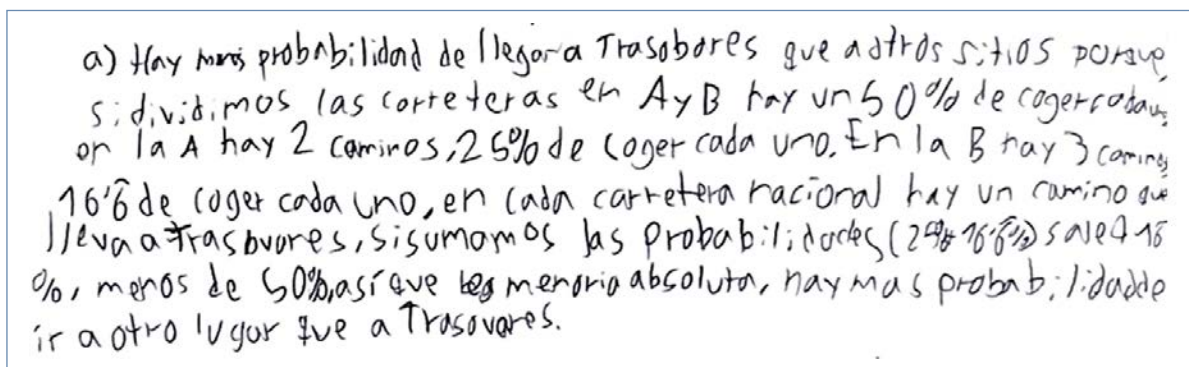 a) Hay menos probabilidad de llegar a Trasobares que a otros sitios porque
si dividimos las carreteras en A y B hay un 50% de coger cada una,
en la A hay 2 caminos, 25% de coger cada uno. En la B hay 3 caminos
16'6 de coger cada uno, en cada carretera nacional hay un camino que
lleva a Trasovares, si sumamos las probabilidades (25% 16'6%) sale
%, menos de 50%, así que es menoria absoluta, hay mas probabilidad de
ir a otro lugar que a Trasovares.